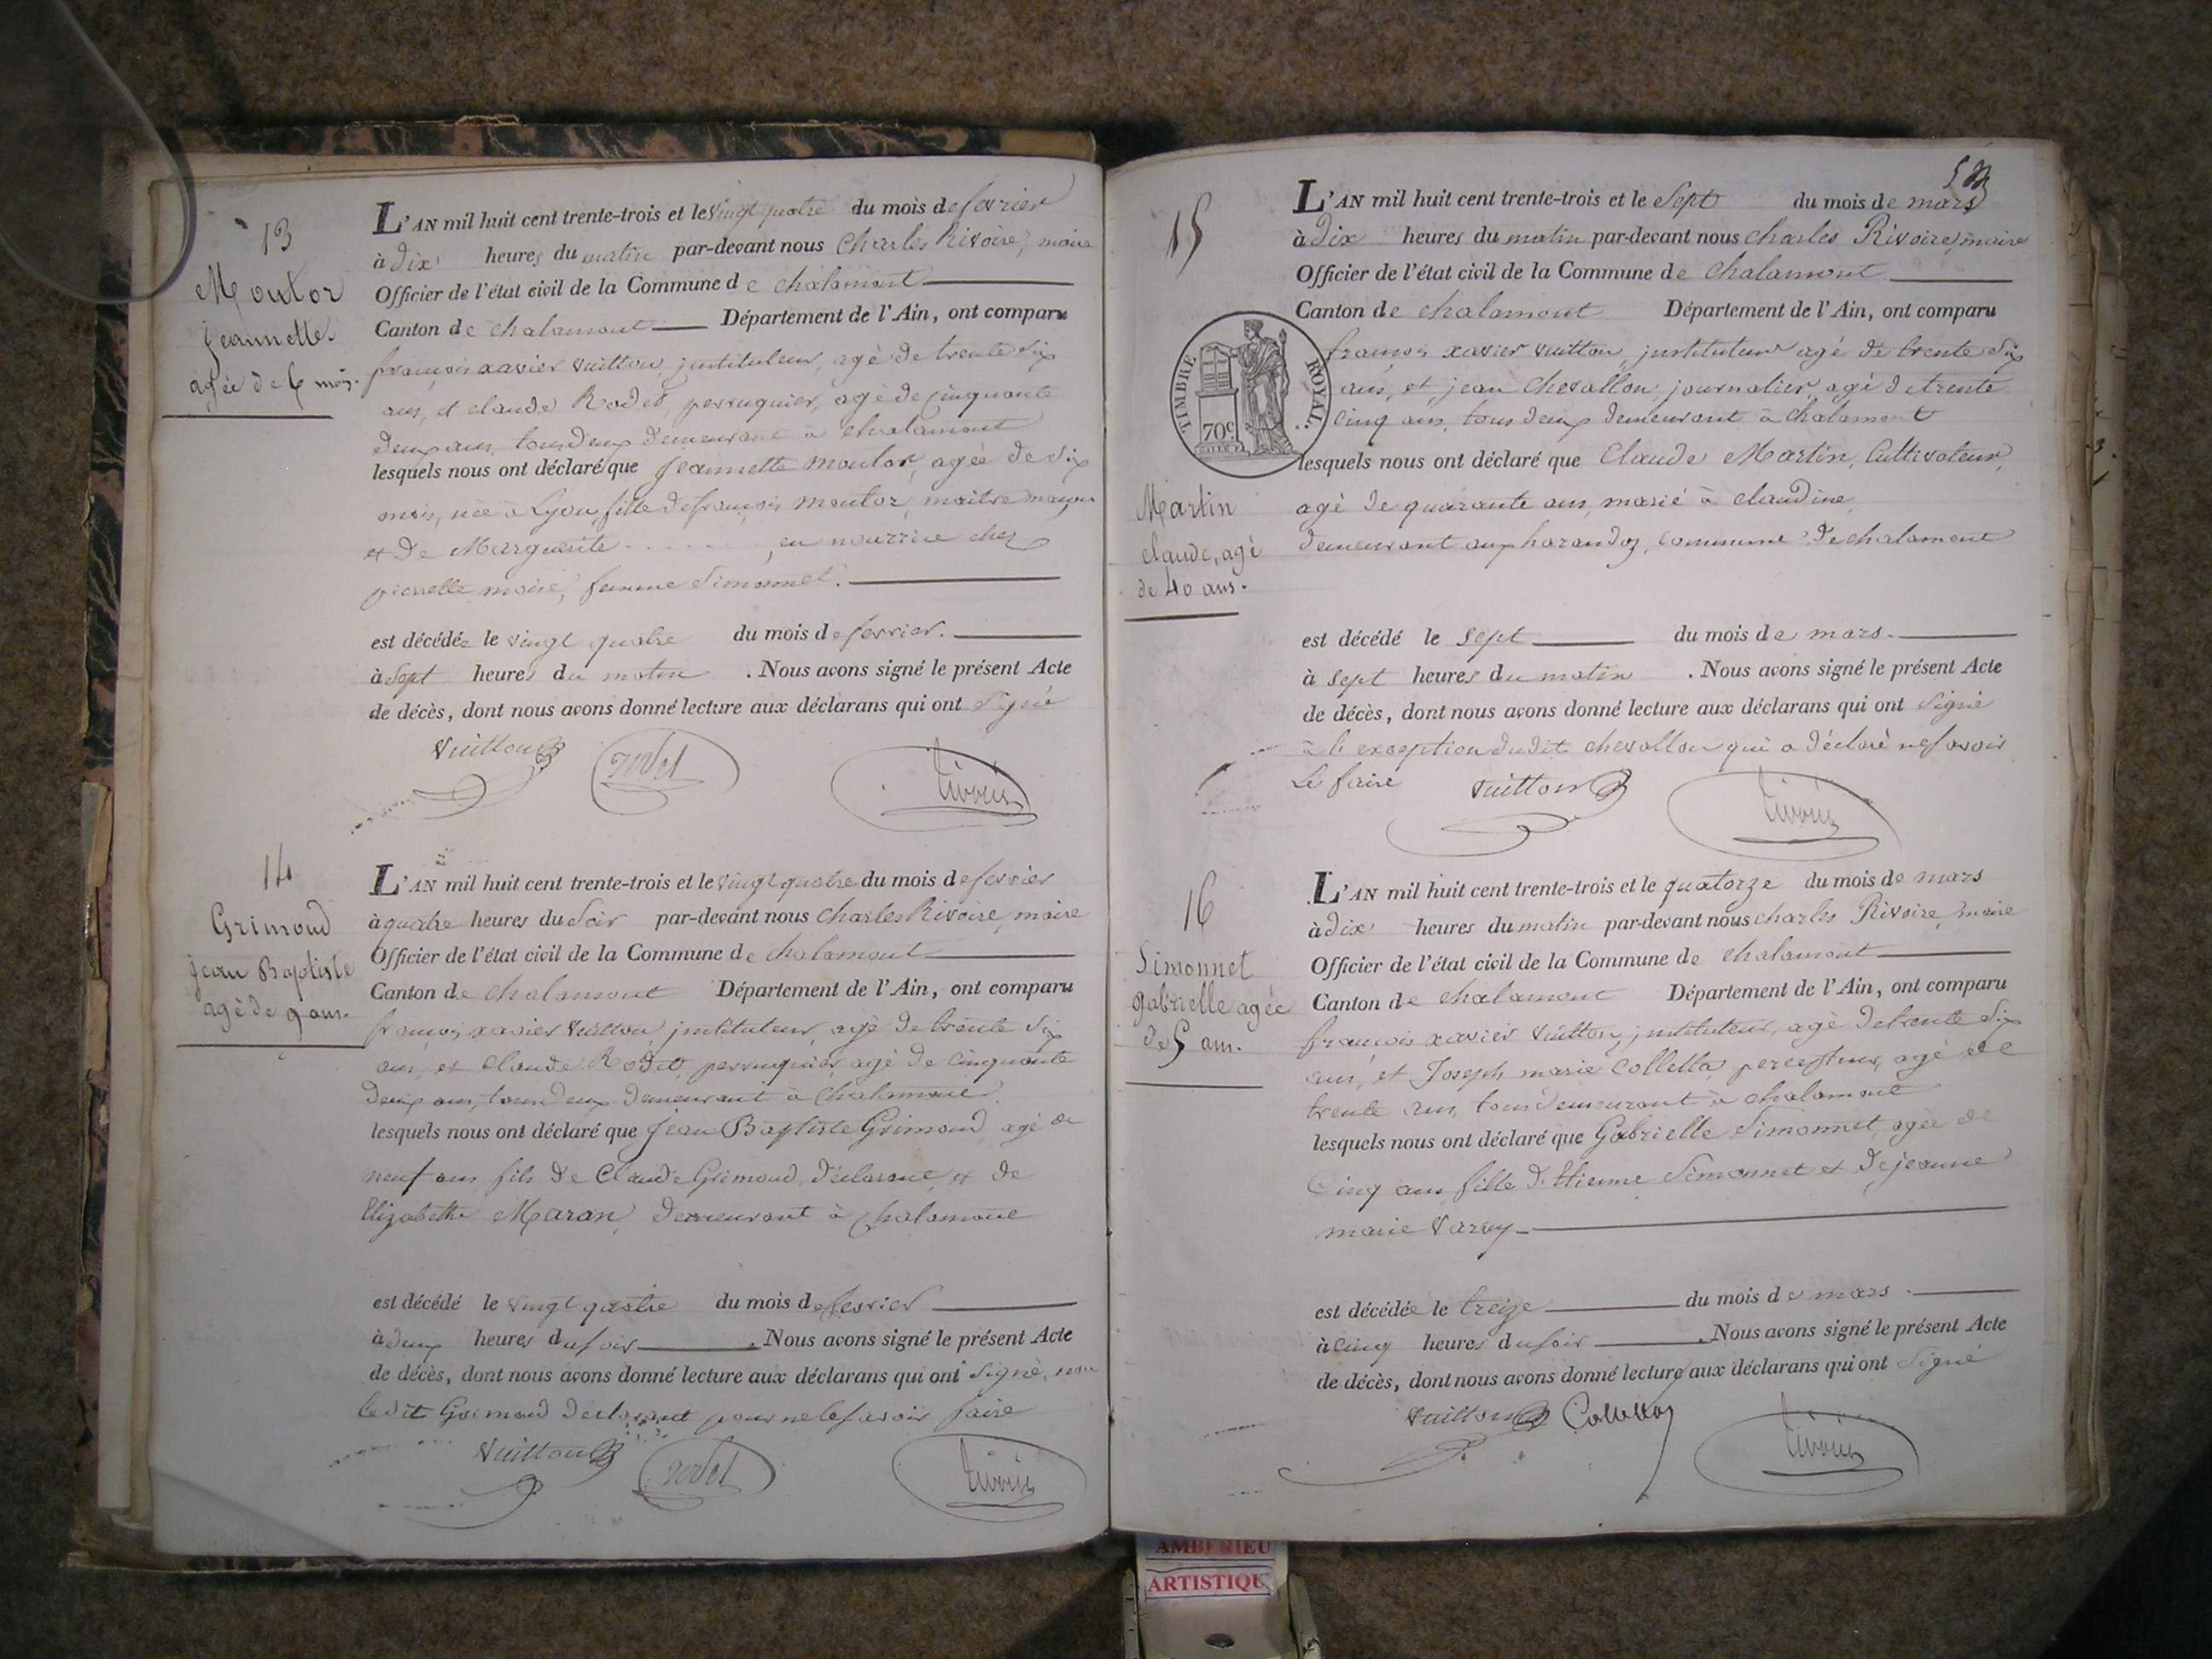 13
Moutor
Jeannette
agée de 6 mois.
L'AN mil huit cent trente-trois et le vingt quatre du mois de fevrier
à dix heures du matin par-devant nous Charles Rivoire, maire
Officier de l'état civil de la Commune de chalamont
Canton de chalamont Département de l'Ain, ont comparu
françois xavier Vuitton, jnstituteur, agé de trente six
ans, et claude Rodet, perruquier, agé de cinquante
deux ans, tous deux demeurant à chalamont
lesquels nous ont déclaré que Jeannette moutor, agée de six
mois, née à Lyon, fille de françois moutor, maitre maçon
et de Marguerite . . . . . . . , en nourrice chez
pierrette moiré, femme Simonnet.
est décédée le vingt quatre du mois de fevrier.
à sept heures du matin . Nous avons signé le présent Acte
de décès, dont nous avons donné lecture aux déclarans qui ont signé
Vuitton rodet rivoire
14
Grimoud
jean Baptiste
agé de 9 ans.
L'AN mil huit cent trente-trois et le vingt quatre du mois de fevrier
à quatre heures du soir par-devant nous charles Rivoire, maire
Officier de l'état civil de la Commune de chalamont
Canton de chalamont Département de l'Ain, ont comparu
françois xavier Vuitton, jnstituteur, agé de trente six
ans, et claude Rodet, perruquier, agé de cinquante
deux ans, tous deux demeurant à chalamont.
lesquels nous ont déclaré que Jean Baptiste Grimoud, agé de
neuf ans, fils de Claude Grimoud, déclarant, et de
Elizabethe Maran, demeurant à chalamont
est décédé le vingt quatre du mois de fevrier
à deux heures du soir . Nous avons signé le présent Acte
de décès, dont nous avons donné lecture aux déclarans qui ont signé, non
ledit Grimoud declarant pour ne le savoir faire
Vuitton rodet rivoire
53
15
TIMBRE ROYAL.
70c
Martin
claude, agé
de 40 ans.
L'AN mil huit cent trente-trois et le sept du mois de mars
à dix heures du matin par-devant nous charles Rivoire, maire
Officier de l'état civil de la Commune de chalamont
Canton de chalamont Département de l'Ain, ont comparu
françois xavier Vuitton, jnstituteur agé de trente six
ans, et jean chevallon, journalier, agé de trente
cinq ans, tous deux demeurant à chalamont
lesquels nous ont déclaré que Claude Martin, Cultivateur,
agé de quarante ans, marié à claudine,
demeurant aux harandoz, commune de chalamont
est décédé le sept du mois de mars.
à sept heures du matin . Nous avons signé le présent Acte
de décès, dont nous avons donné lecture aux déclarans qui ont signé
à l'exception dudit chevallon qui a déclaré ne savoir
le faire Vuitton rivoire
16
Simonnet
gabrielle agée
de 5 ans.
L'AN mil huit cent trente-trois et le quatorze du mois de mars
à dix heures du matin par-devant nous charles Rivoire, maire
Officier de l'état civil de la Commune de chalamont
Canton de chalamont Département de l'Ain, ont comparu
françois xavier Vuitton, jnstituteur, agé de trente six
ans, et Joseph marie Colletta, percepteur, agé de
trente ans, tous demeurant à chalamont
lesquels nous ont déclaré que Gabrielle Simonnet, agée de
Cinq ans, fille d'Etienne Simonnet et de jeanne
marie Varey
est décédée le treize du mois de mars.
à cinq heures du soir . Nous avons signé le présent Acte
de décès, dont nous avons donné lecture aux déclarans qui ont signé
Vuitton Colletta rivoire
AMBERIEU
ARTISTIQU